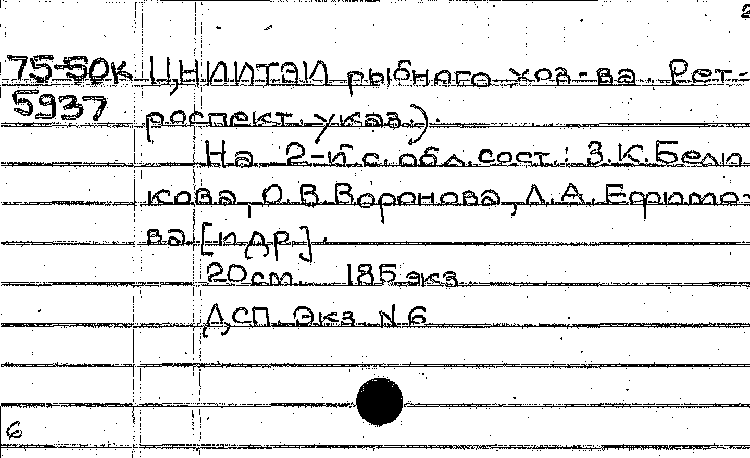 2
75-50к ЦНИИТЭИ рыбного хоз-ва. Рет-
5937 роспект. указ.).
На 2-й с. обл. сост.: З.К.Бели
кова, О.В.Воронова, Л.А.Ефимо-
ва [и др].
20 см. 185 экз
ДСП. Экз. N 6
6